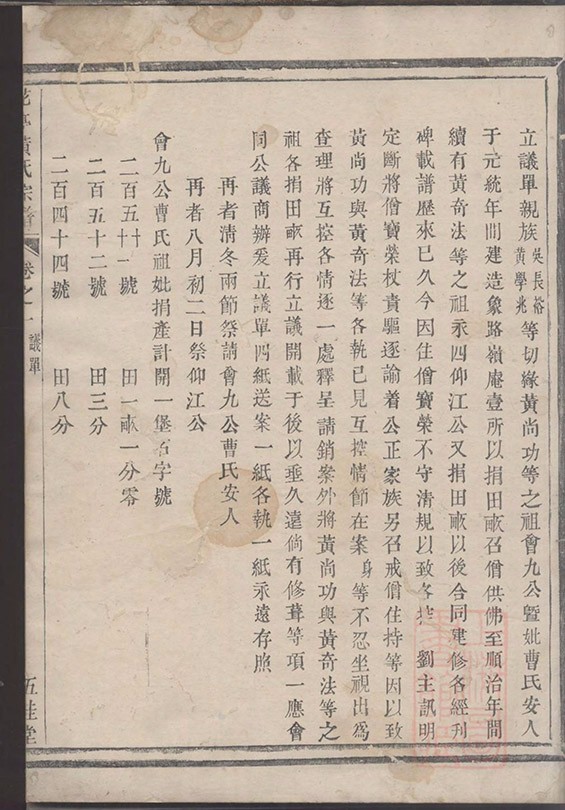 立議單親族吳長裕黃學兆等切緣黃尚功等之祖會九公暨妣曹氏安人
于元統年間建造象路嶺庵壹所以捐田畝召僧供佛至順治年間
續有黃奇法等之祖永四仰江公又捐田畝以後合同建修各經刊
碑載譜歷來已久今因住僧寶榮不守清規以致各 劉主訊明
定斷將僧寶榮杖責驅逐諭着公正家族另召戒僧住持等因以致
黃尚功與黃奇法等各執已見互控情節在案身等不忍坐視出爲
查理將互控各情逐一處釋呈請銷案外將黃尚功與黃奇法等之
祖各捐田畝再行立議開載于後以垂久遠倘有修葺等項一應會
同公議商辦爰立議單四紙送案一紙各執一紙永遠存照
再者清冬兩節祭請會九公曹氏安人
再者八月初二日祭仰江公
會九公曹氏祖妣捐產計開一堡 字號
二百五十一號 田一畝一分零
二百五十二號 田三分
二百四十四號 田八分
黃氏宗譜 卷之一 議單 五桂堂